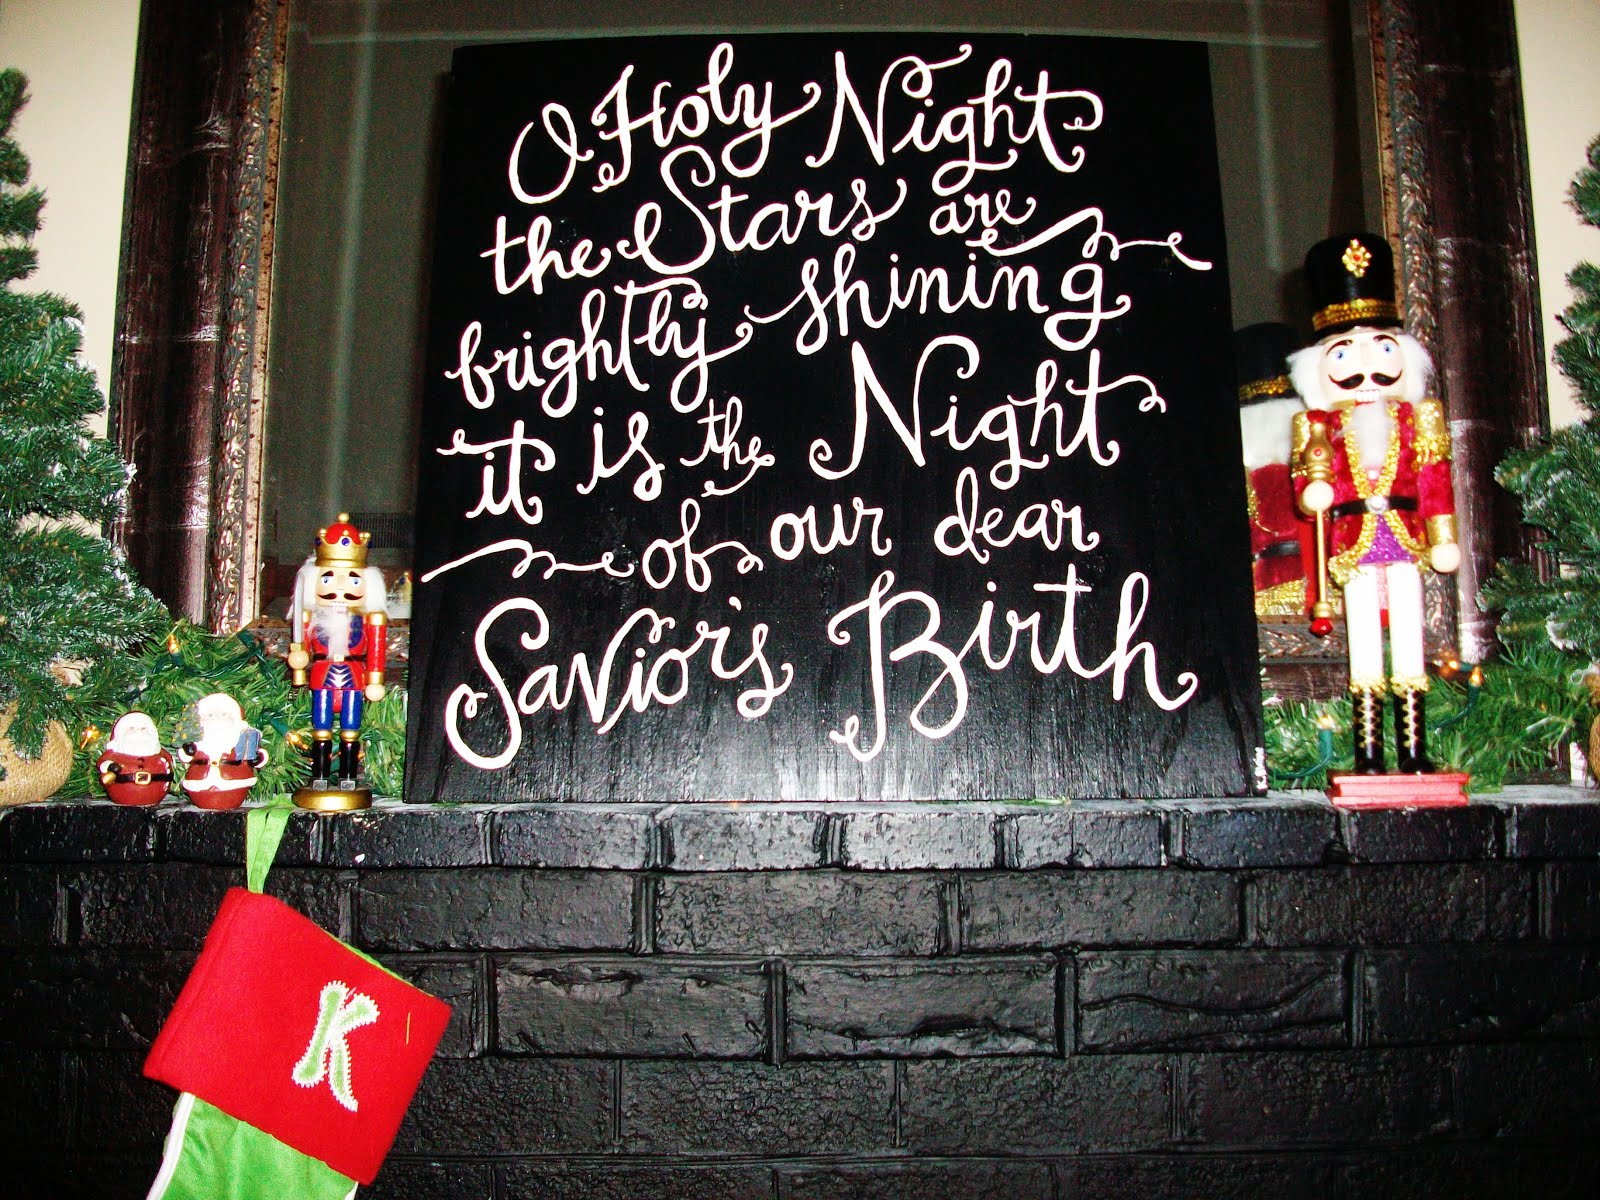 O Holy Night
the Stars are
brightly shining
it is the Night
of our dear
Savior's Birth
K